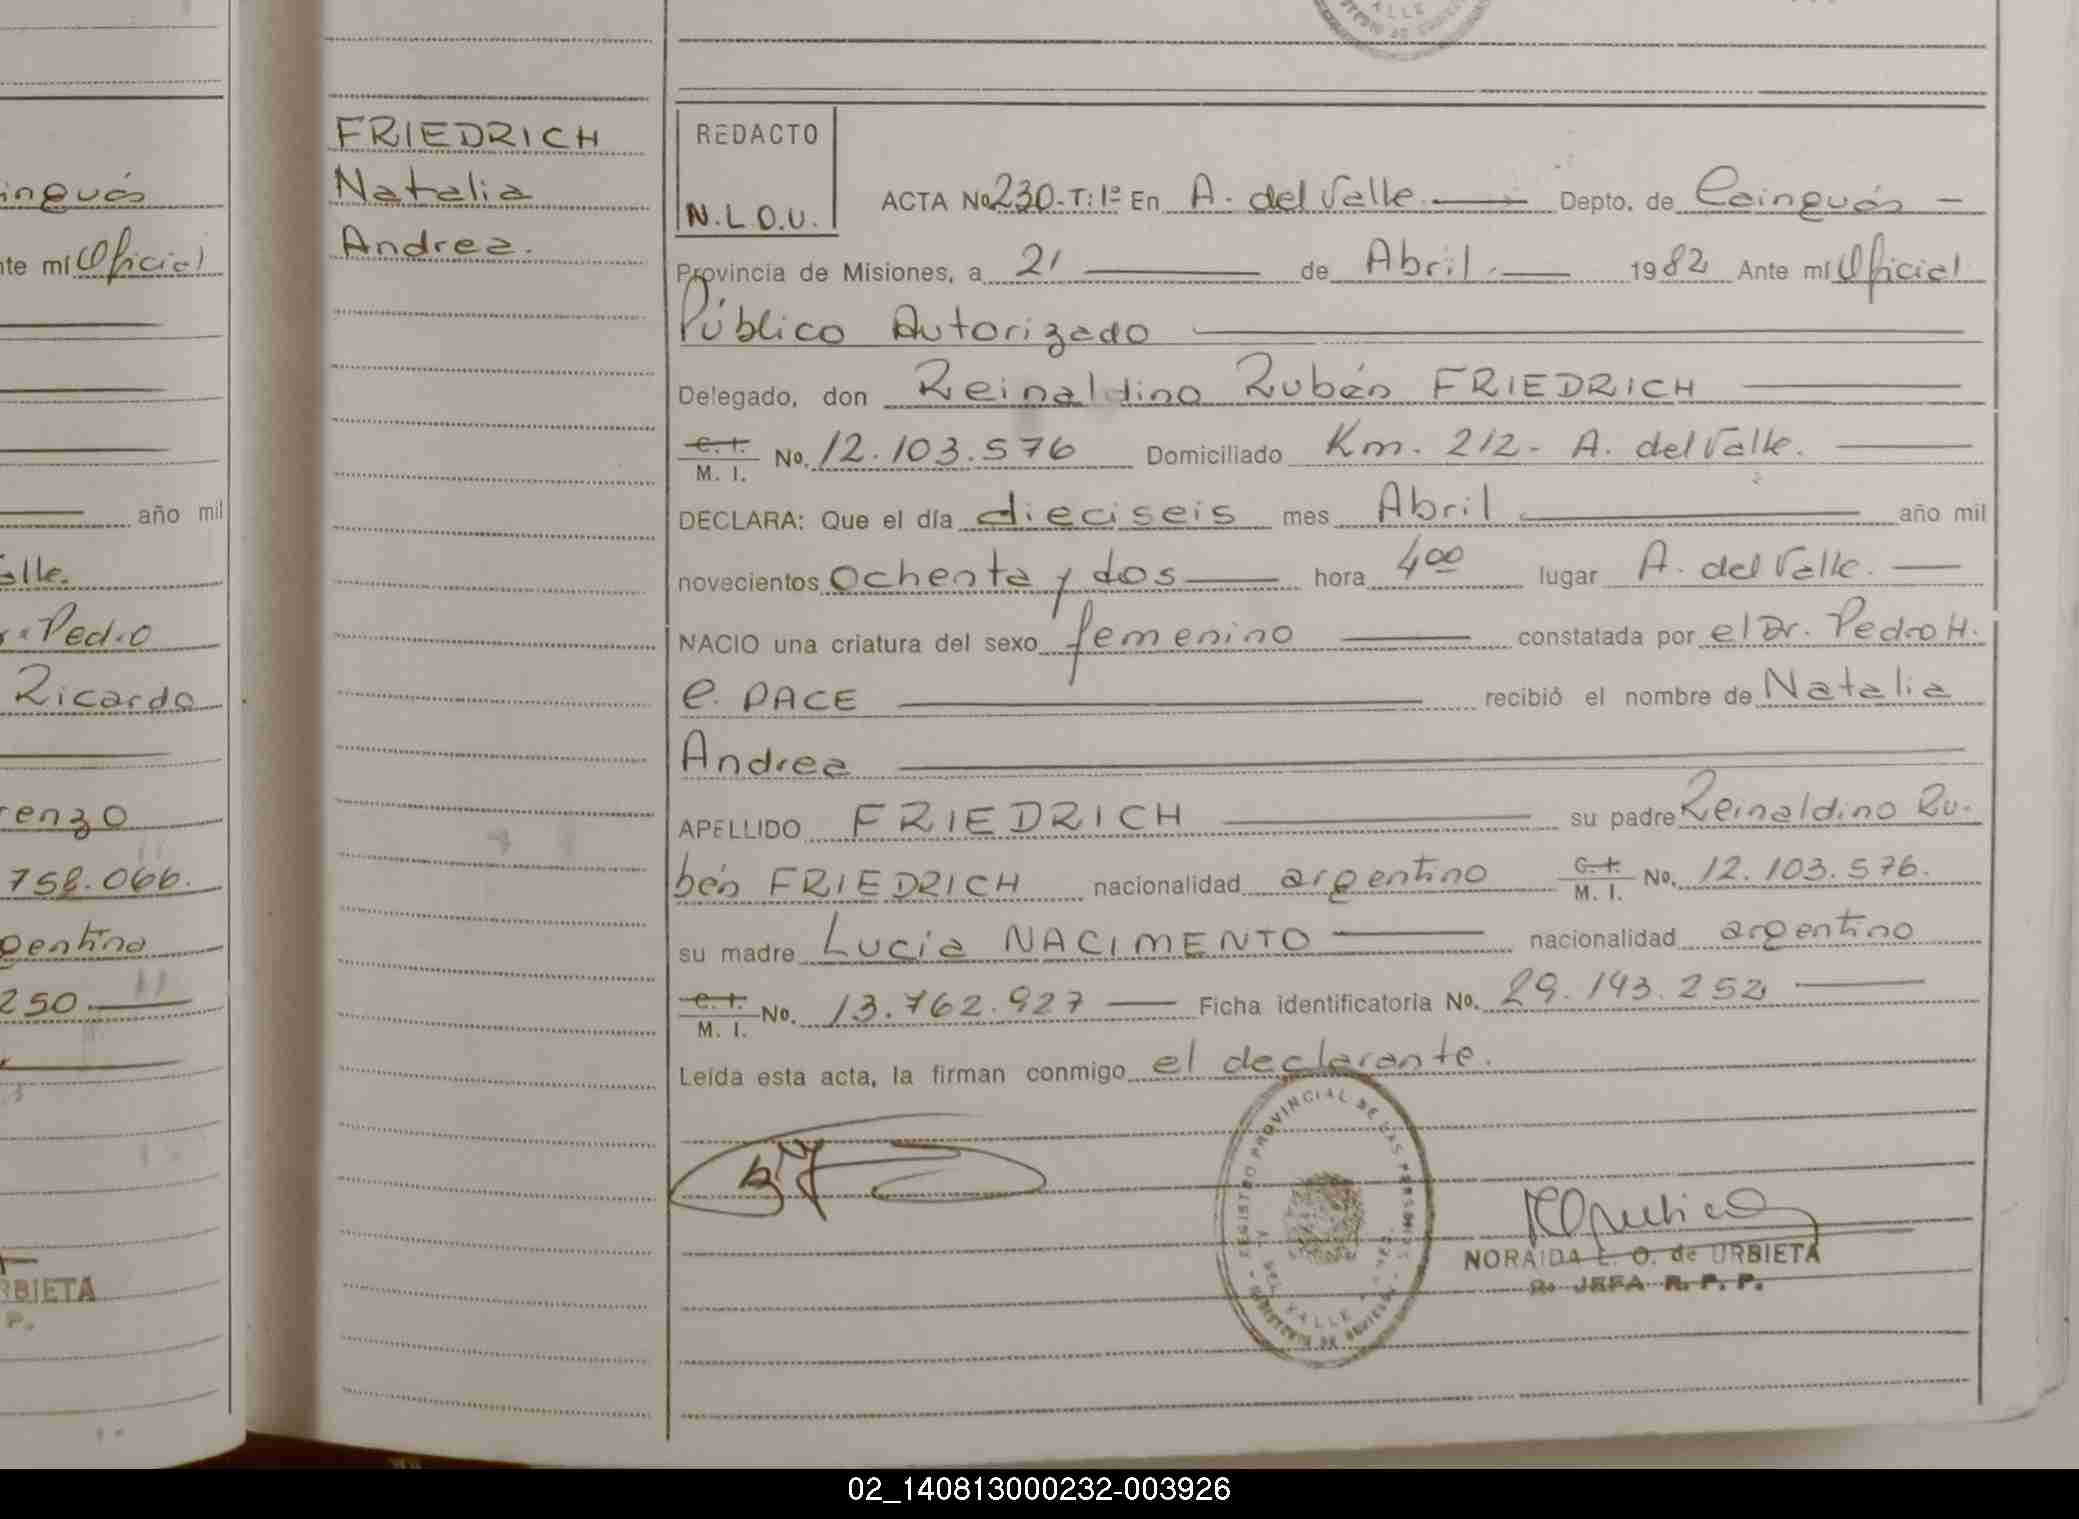 inguás
nte mí Oficial
año mil
alle.
Pedro
Ricardo
renzo
758.066.
gentino
250
RBIETA
P.
FRIEDRICH
Natalia
Andrea.
REDACTO
N.L.O.U.
ACTA No 230-T:1º En A. del Valle. Depto. de Cainguás
Provincia de Misiones, a 21 de Abril. 1982 Ante mí Oficial
Público Autorizado
Delegado, don Reinaldino Rubén FRIEDRICH
C. I.
M. I. No. 12.103.576 Domiciliado Km. 212- A. del Valle.
DECLARA: Que el día dieciseis mes Abril año mil
novecientos ochenta y dos hora 4 00 lugar A. del Valle.
NACIO una criatura del sexo femenino constatada por el Dr. Pedro H.
C. PACE recibió el nombre de Natalia
Andrea
APELLIDO FRIEDRICH su padre Reinaldino Ru-
bén FRIEDRICH nacionalidad argentino C. I.
M. I. No. 12.103.576.
su madre Lucia NACIMENTO nacionalidad argentino
C. I.
M. I. No. 13.762.927 Ficha identificatoria No. 29.143.252
Leída esta acta, la firman conmigo el declarante.
REGISTRO PROVINCIAL DE LAS PERSONAS
DEL VALLE
NORAIDA L. O. de URBIETA
JEFA R. P. P.
02_140813000232-003926